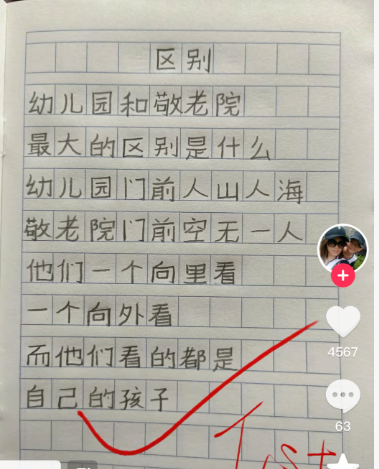 区别
幼儿园和敬老院
最大的区别是什么
幼儿园门前人山人海
敬老院门前空无一人
他们一个向里看
一个向外看
而他们看的都是
自己的孩子
4567
63